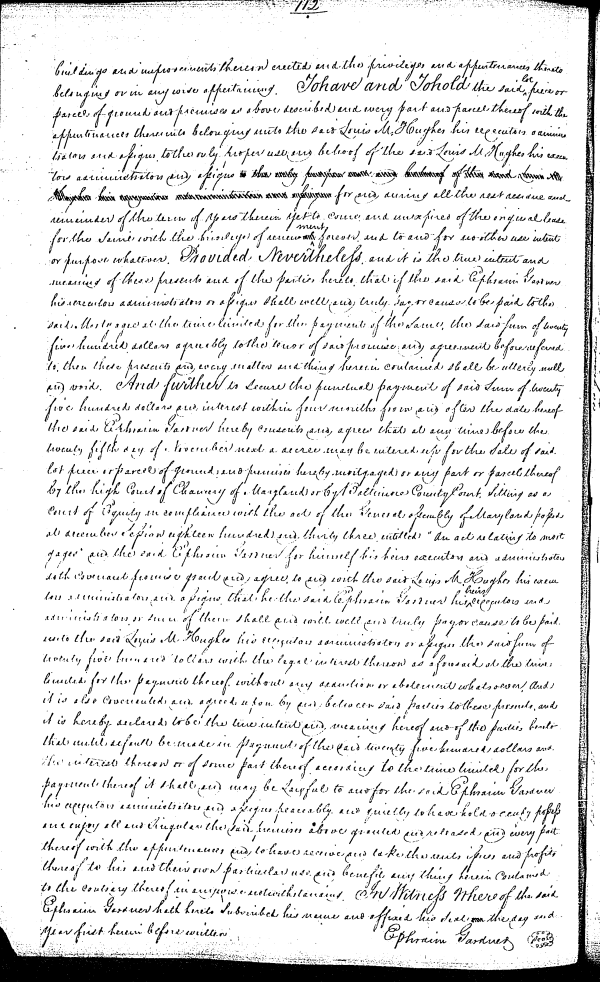 112
buildings and improvements thereon erected and the privileges and appurtenances thereto
belonging or in any wise appertaining. To have and To hold the said lot piece or
parcel of ground and premises as above described and every part and parcel thereof with the
appurtenances thereunto belonging unto the said Louis M. Hughes his executors adminis
trators and assigns, to the only proper use and behoof of the said Louis M. Hughes his execu
tors administrators and assigns to the only proper use and behoof of the said Louis M.
Hughes his executors administrators and assigns for and during all the rest residue and
remainder of the term of years therein yet to come and unexpired of the original lease
for the same with the privilege of renewment forever and to and for no other use intent
or purpose whatever. Provided Nevertheless, and it is the true intent and
meaning of these presents and of the parties hereto, that if the said Ephraim Gardner
his executors administrators or assigns shall well and truly pay or cause to be paid to the
said Mortgagee at the time limited for the payment of the same, the said sum of twenty
five hundred dollars agreeably to the tenor of said promise and agreement before referred
to, then these presents and every matter and thing herein contained shall be utterly null
and void. And further to secure the punctual payment of said sum of twenty
five hundred dollars and interest within four months from and after the date hereof
the said Ephraim Gardner hereby consents and agrees that at any time before the
twenty fifth day of November next a decree may be entered up for the sale of said
lot piece or parcel of ground and premises hereby mortgaged or any part or parcels thereof
by the high Court of Chancery of Maryland or by Baltimore County Court, sitting as a
Court of Equity in compliance with the act of the General Assembly of Maryland passed
at december Session eighteen hundred and thirty three, entitled "An act relating to mort
gages" and the said Ephraim Gardner for himself his heirs executors and administrators
doth covenant promise grant and agree to and with the said Louis M. Hughes his execu
tors administrators and assigns, that he the said Ephraim Gardner his heirs executors and
administrators or some of them shall and will well and truly pay or cause to be paid
unto the said Louis M. Hughes his executors administrators or assigns the said sum of
twenty five hundred dollars with the legal interest thereon as aforesaid at the time
limited for the payment thereof without any deduction or abatement whatsoever. And
it is also covenanted and agreed upon by and between said parties to these presents, and
it is hereby declared to be the true intent and meaning hereof and of the parties hereto
that until default be made in payment of the said twenty five hundred dollars and
the interest thereon or of some part thereof according to the time limited for the
payment thereof it shall and may be Lawful to and for the said Ephraim Gardner
his executors administrators and assigns peaceably and quietly to have hold occupy possess
and enjoy all and singular the said premises above granted and released and every part
thereof with the appurtenances and to have receive and take the rents issues and profits
thereof to his and their own particular use and benefit any thing herein contained
to the contrary thereof in anywise notwithstanding. In Witness Whereof the said
Ephraim Gardner hath hereto Subscribed his name and affixed his seal on the day and
year first herein before written
Ephraim Gardner (Seal)